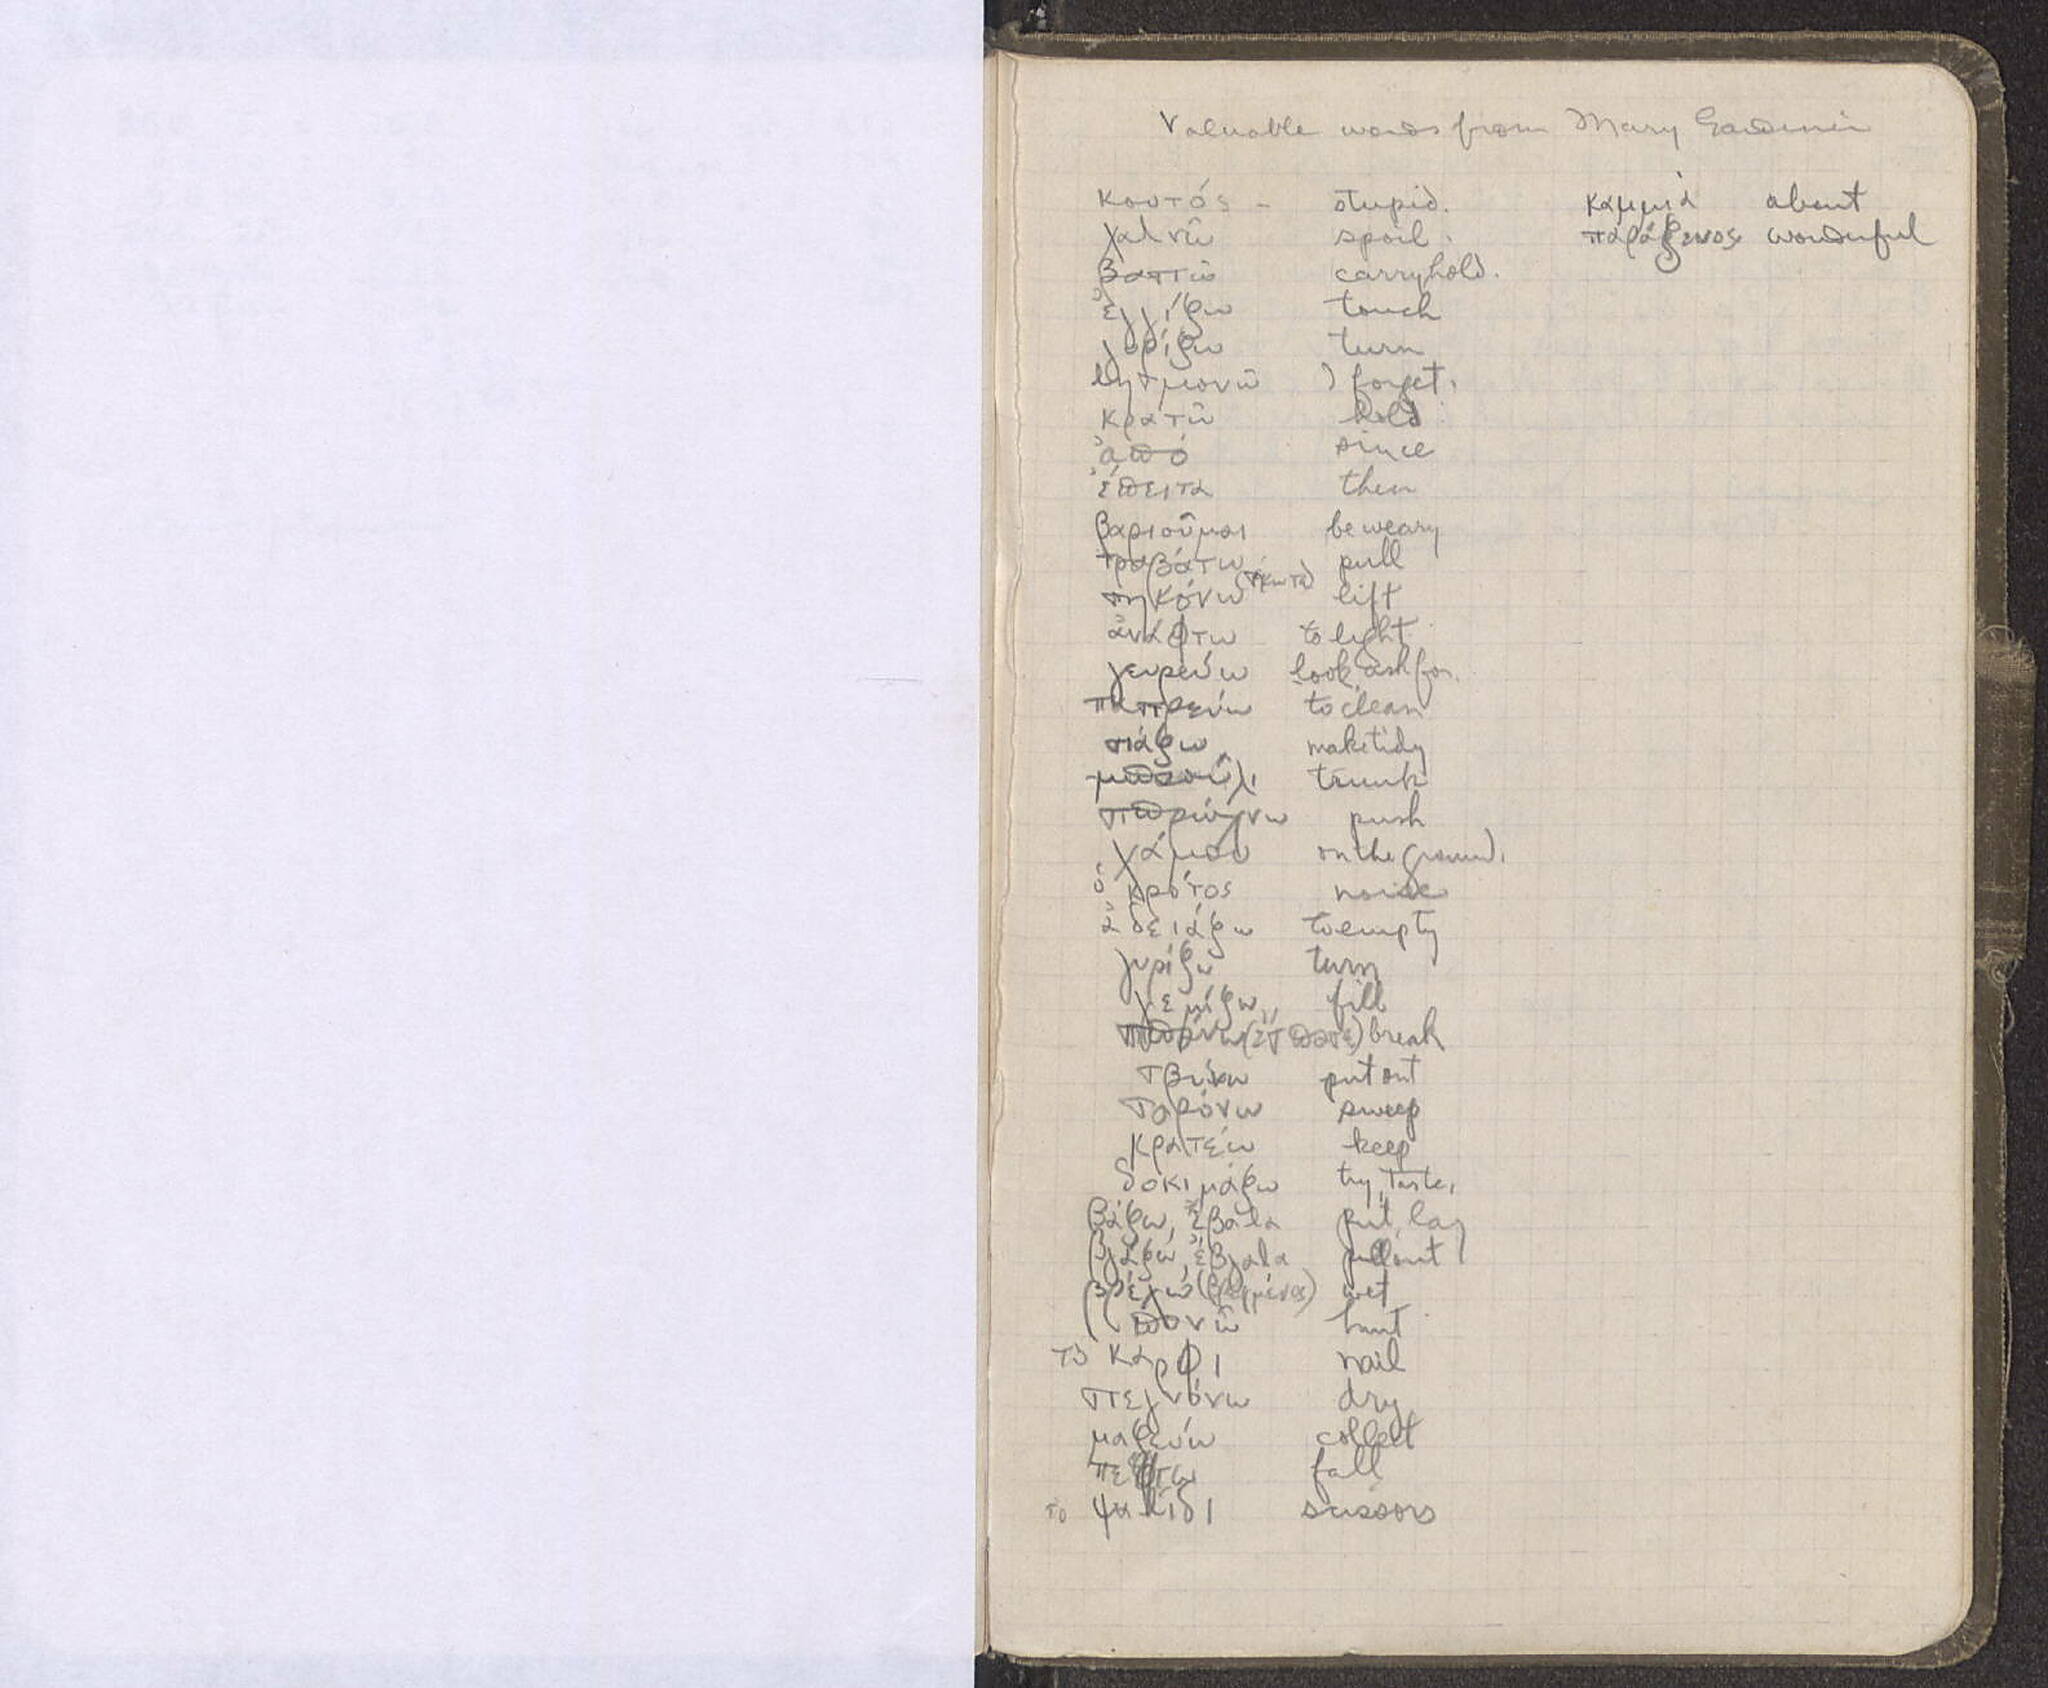 Valuable words from Mary Gardiner
κουτός - stupid. καμμιά about
χαλνῶ spoil. παράξενος wonderful
βαστῶ carry, hold.
ἐγγίζω touch
γυρίζω turn
λησμονῶ forget.
κρατῶ hold
ἀπό since
ἔπειτα then
βαριοῦμαι be weary
τραβάτω pull
σηκόνω lift
ἀνάφτω to light
γευρεύω look, ask for.
παστρεύω to clean
σιάζω make tidy
μπαούλι trunk
σπρώχνω push
χάμου on the ground.
ὁ κρότος noise
ἀδειάζω to empty
γυρίζω turn
γεμίζω fill
break
σβύνω put out
σαρόνω sweep
κρατέω keep
δοκιμάζω try, taste,
βάζω, ἔβαλα put, lay
βγάζω, ἔβγαλα pull out
βρέχω (βρεγμένος) wet
πονῶ hurt
τὸ καρφι nail
στεγνόνω dry
μαζεύω collect
πεφτω fall
το ψαλίδι scissors